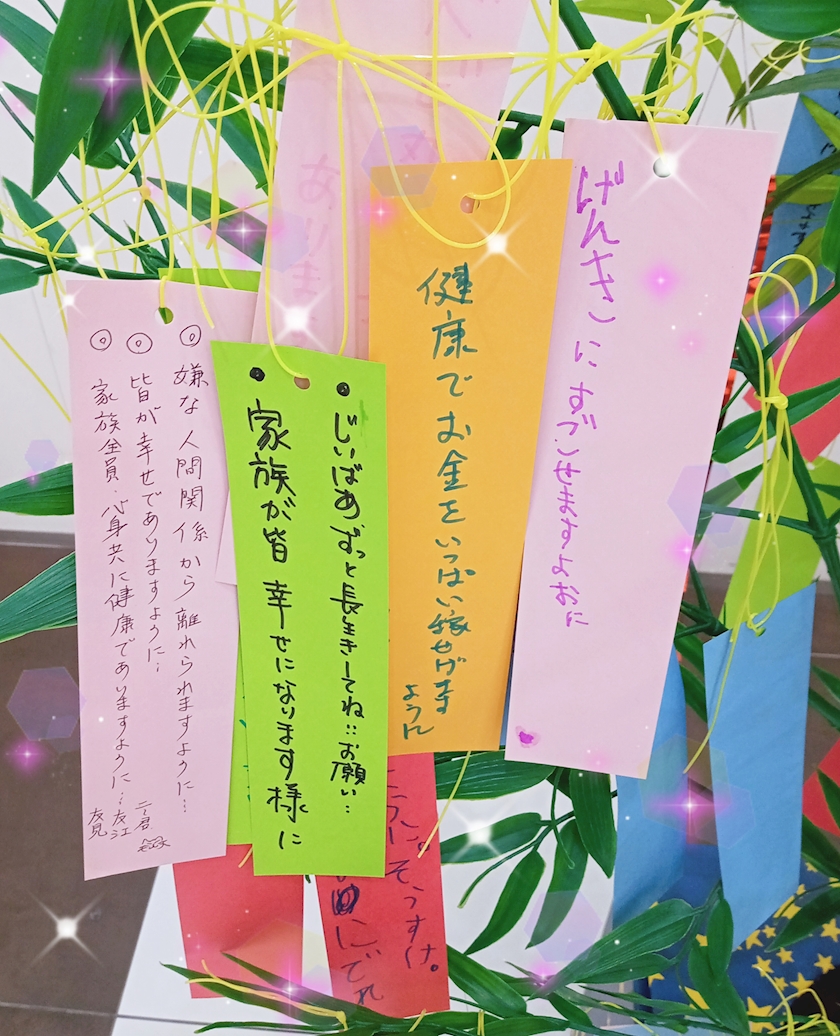 げんきにすごせますよおに
健康でお金をいっぱい稼げます
ように
じいばあずっと長生きしてね::お願い…
家族が皆 幸せになります様に
◎嫌な人間関係から離れられますように…
◎皆が幸せでありますように…
◎家族全員、心身共に健康でありますように…
友江
友見
そうすけ。
にでれ